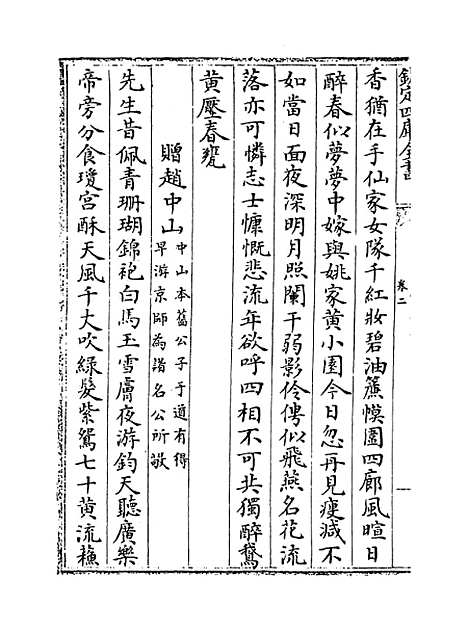 欽定四庫全書
卷二
香猶在手仙家女隊千紅妝碧油簾幙圍四廊風暄日
醉春似夢夢中嫁與姚家黃小園今日忽再見瘦減不
如當日面夜深明月照闌干弱影伶俜似飛燕名花流
落亦可憐志士慷慨悲流年欲呼四相不可共獨醉鵞
黃壓春甕
贈趙中山中山本舊公子于道有得
早游京師為諸名公所敬
先生昔佩青珊瑚錦袍白馬玉雪膚夜游鈞天聽廣樂
帝旁分食瓊宮酥天風千丈吹綠髮紫鴛七十黃流蘓